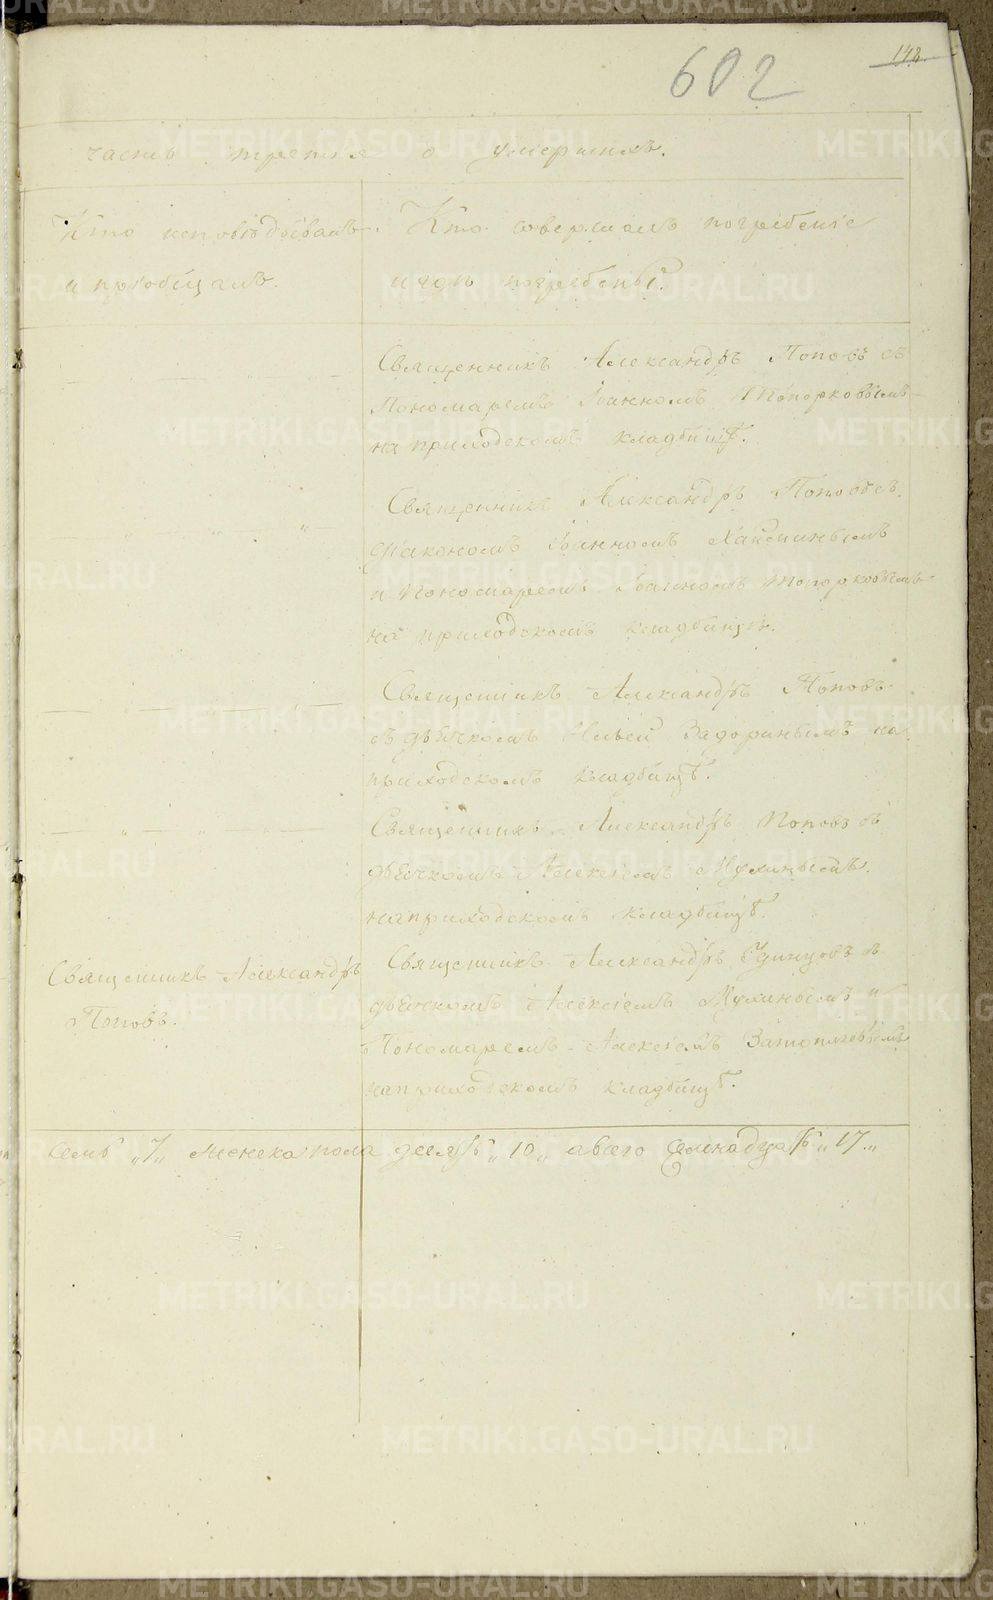 148.
602
часть третья о умершихъ.
Кто исповѣдывалъ
и пріобщалъ.
Кто совершалъ погребеніе
и гдѣ погребены.
Священникъ Александръ Поповъ съ
Пономаремъ Іоанномъ Топорковымъ
на приходскомъ кладбищѣ.
Священникъ Александръ Поповъ съ
діакономъ Іоанномъ
и Пономаремъ Іоанномъ Топорковымъ
на приходскомъ кладбищѣ.
Священникъ Александръ Поповъ
съ дьячкомъ Ильей Задоринымъ на
приходскомъ кладбищѣ.
Священникъ Александръ Поповъ съ
дьячкомъ Алексіемъ Мухинымъ
на приходскомъ кладбищѣ.
Священникъ Александръ
Поповъ.
Священникъ Александръ Удинцовъ съ
дьячкомъ Алексіемъ Мухинымъ и
Пономаремъ Алексіемъ
на приходскомъ кладбищѣ.
семь „7„ женска пола десять „10„ а всего семнадцать „17„
METRIKI.GASO-URAL.RU